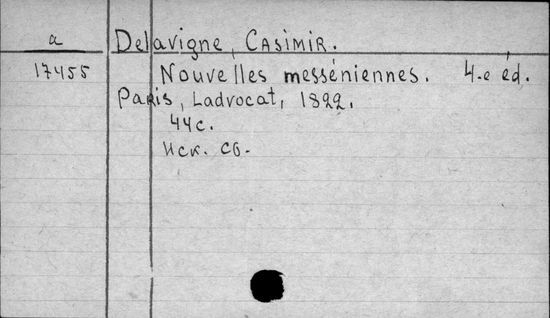 a
17455
Delavigne, CASIMIR.
Nouvelles messéniennes. 4.e éd.
Paris, Ladvocat, 1822.
44c.
Иск. сб.